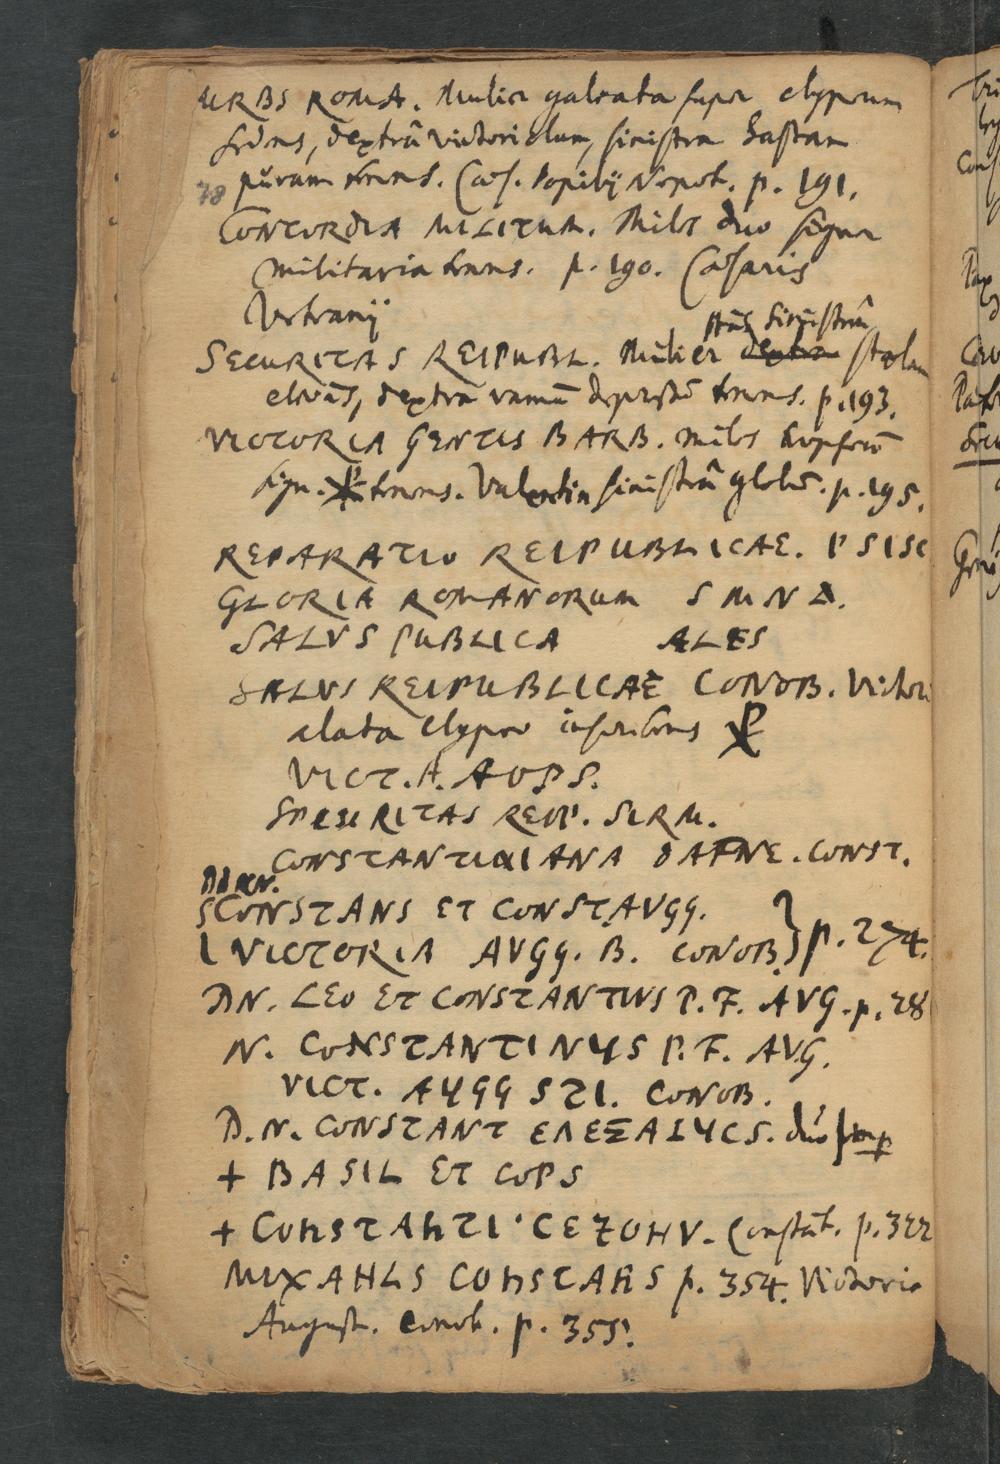 URBS ROMA. Mulier galeata super clypeum
sedens, dextrâ victoriolam, sinistra hastam
78 puram tenens. Caes. Popilij Nepot. p. 191.
CONCORDIA MILITUM. Miles duo signa
militaria tenens. p. 190. Caesaris
Vetranij
stās sinistrâ
SECURITAS REIPUBL. Mulier dextra stolam
elevās, dextra ramū depressū tenens. p. 193.
VICTORIA GENTIS BARB. miles
sign. ☧ tenens. Valentin sinistrâ globū. p. 195.
REPARATIO REIPUBLICAE. P SISC
GLORIA ROMANORUM S M N Δ.
SALVS PUBLICA ALES
SALVS REIPUBLICAE CONOB. Victori
alata clypeo inscribens ☧
VICT. A. AOPS.
SECURITAS REIP. SIRM.
CONSTANTINIANA DAFNE. CONST.
CONSTANS ET CONSTAVGG.
VICTORIA AVGG. B. CONOB } p. 274.
DN. LEO ET CONSTANTINVS P. F. AVG. p. 28
N. CONSTANTINYS P. F. AVG.
VICT. AYGG STI. CONOB.
D. N. CONSTANT duo
+ BASIL ET COPS
+ COhSTAhTI·CEZOHV. Constāt. p. 322
MIXAHLS COhSTAhS p. 354. Victoria
August. conob. p. 355.